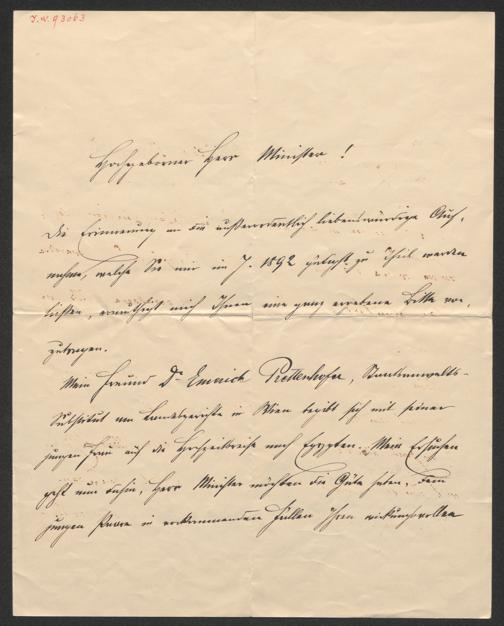 I.N. 93063
Hochgeborner Herr Minister!
Die Erinnerung an die außerordentlich liebenswürdige Auf-
nahme, welche Sie mir im J. 1892 gütigst zu Theil werden
ließen, ermuthigt mich Ihnen eine ganz ergebene Bitte vor-
zutragen.
Mein Freund Dr. Emerich Prettenhofer, Staatsanwalts-
Substitut am Landesgerichte in Wien begibt sich mit seiner
jungen Frau auf die Hochzeitsreise nach Egypten. Mein Ersuchen
geht nun dahin, Herr Minister möchten die Güte haben, dem
jungen Paare in vorkommenden Fällen Ihren wirkungsvollen